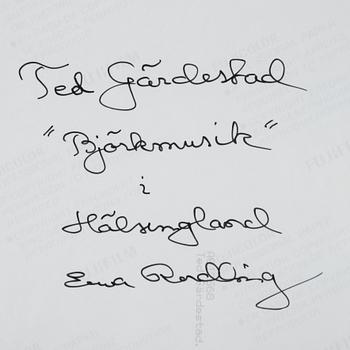 Ted Gärdestad
"Björkmusik"
i
Hälsingland
Ewa Rudling